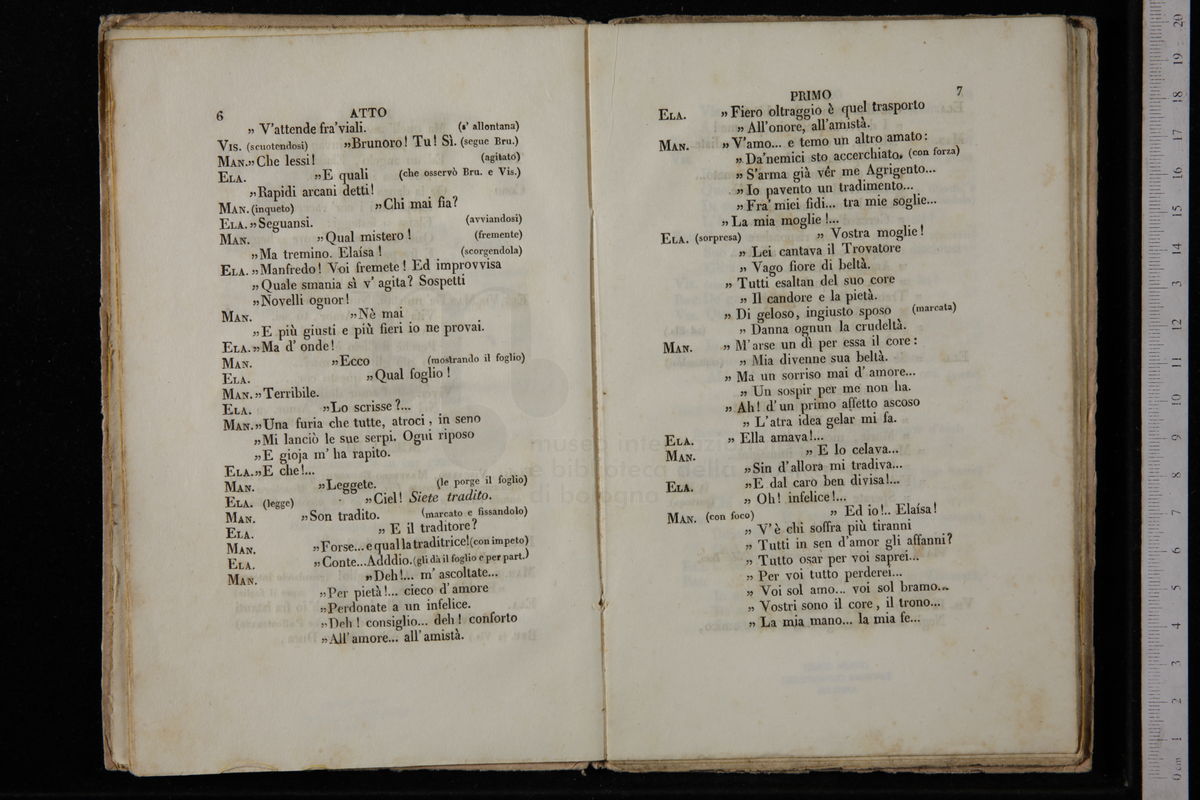 6 ATTO
» V'attende fra'viali. (s' allontana)
VIS. (scuotendosi) »Brunoro! Tu! Sì. (segue Bru.)
MAN.» Che lessi! (agitato)
ELA. »E quali (che osservò Bru. e Vis.)
»Rapidi arcani detti!
MAN. (inqueto) »Chi mai fia?
ELA. » Seguansi. (avviandosi)
MAN. » Qual mistero! (fremente)
»Ma tremino. Elaísa! (scorgendola)
ELA. »Manfredo! Voi fremete! Ed improvvisa
»Quale smania sì v' agita? Sospetti
»Novelli ognor!
MAN. »Nè mai
»E più giusti e più fieri io ne provai.
ELA. »Ma d' onde!
MAN. »Ecco (mostrando il foglio)
ELA. »Qual foglio!
MAN. » Terribile.
ELA. »Lo scrisse?...
MAN.»Una furia che tutte, atroci, in seno
»Mi lanciò le sue serpi. Ogni riposo
»E gioja m' ha rapito.
ELA.»E che!...
MAN. »Leggete. (le porge il foglio)
ELA. (legge) »Ciel! Siete tradito.
MAN. »Son tradito. (marcato e fissandolo)
ELA. » E il traditore?
MAN. »Forse... e qual la traditrice!(con impeto)
ELA. » Conte...Adddio. (gli dà il foglio e per part.)
MAN. »Deh!... m' ascoltate...
»Per pietà!... cieco d' amore
»Perdonate a un infelice.
»Deh! consiglio... deh! conforto
»All' amore... all' amistà.
PRIMO 7
ELA. » Fiero oltraggio è quel trasporto
» All'onore, all'amistà.
MAN. » V'amo... e temo un altro amato:
» Da'nemici sto accerchiato, (con forza)
» S'arma già vêr me Agrigento...
» Io pavento un tradimento...
» Fra' miei fidi... tra mie soglie...
» La mia moglie!...
ELA. (sorpresa) » Vostra moglie!
» Lei cantava il Trovatore
» Vago fiore di beltà.
» Tutti esaltan del suo core
» Il candore e la pietà.
» Di geloso, ingiusto sposo (marcata)
» Danna ognun la crudeltà.
MAN. » M'arse un dì per essa il core:
» Mia divenne sua beltà.
» Ma un sorriso mai d' amore...
» Un sospir per me non ha.
» Ah! d'un primo affetto ascoso
» L'atra idea gelar mi fa.
ELA. » Ella amava!...
MAN. » E lo celava...
»Sin d'allora mi tradiva...
ELA. »E dal caro ben divisa!...
» Oh! infelice!...
MAN. (con foco) » Ed io!.. Elaísa!
» V'è chi soffra più tiranni
» Tutti in sen d'amor gli affanni?
» Tutto osar per voi saprei...
» Per voi tutto perderei...
» Voi sol amo... voi sol bramo...
» Vostri sono il core, il trono...
» La mia mano... la mia fe...